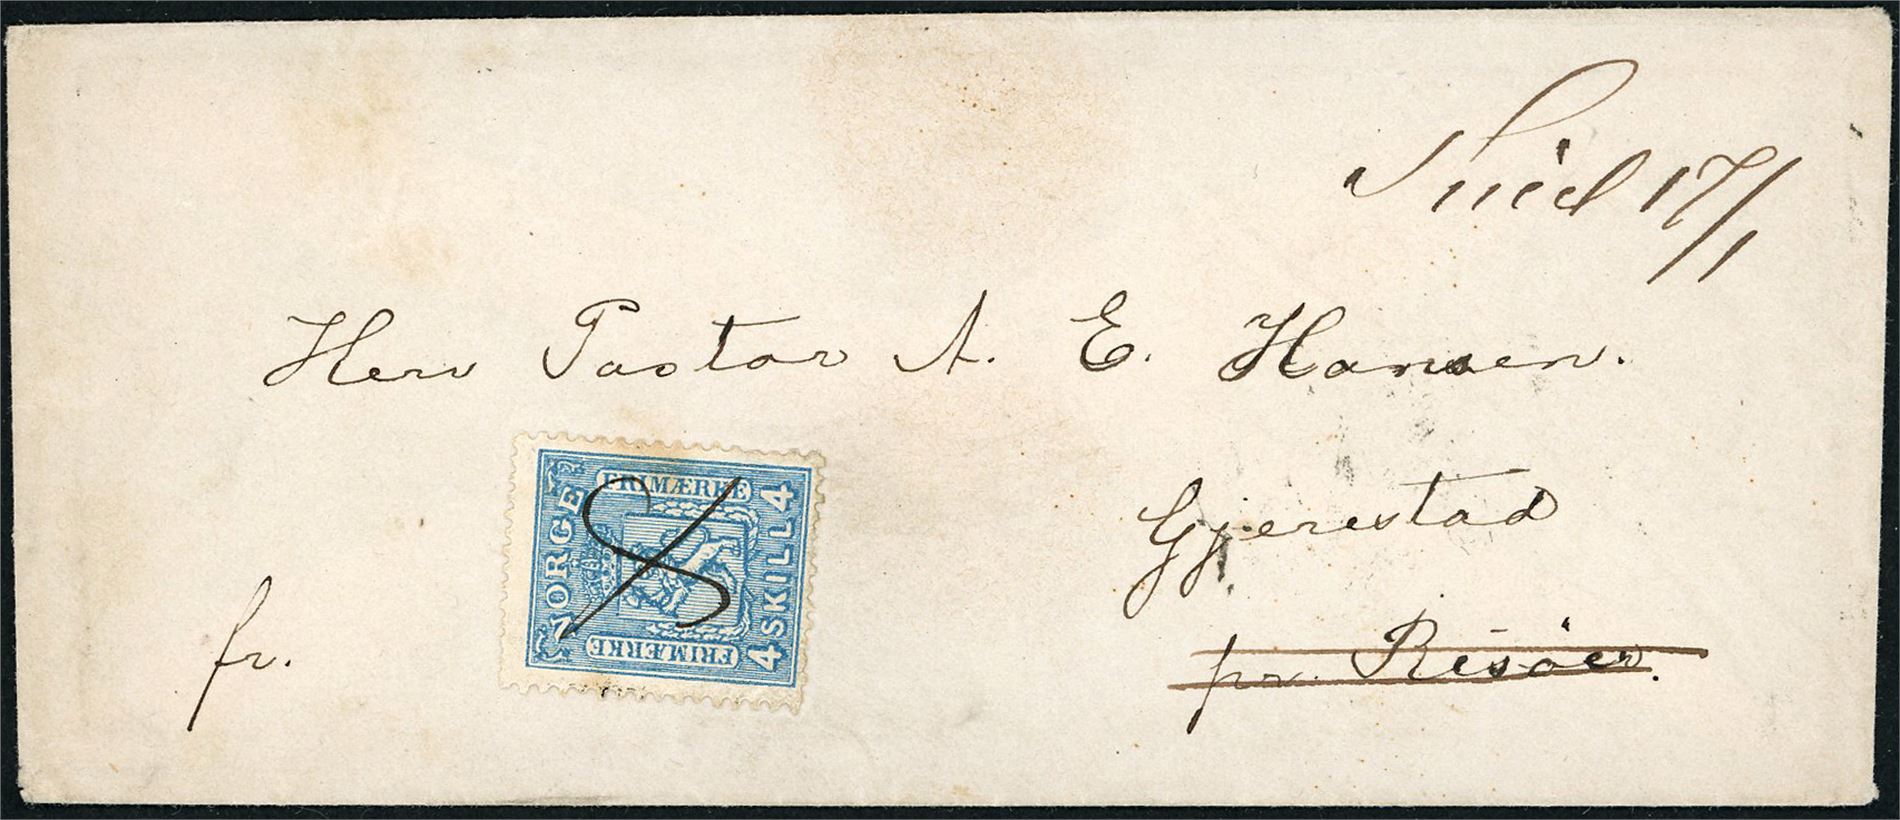 17/1
Herr Pastor A. E. Hansen.
Gjerestad
pr. Risöer.
fr.
NORGE
FRIMÆRKE
FRIMÆRKE
4 SKILL 4